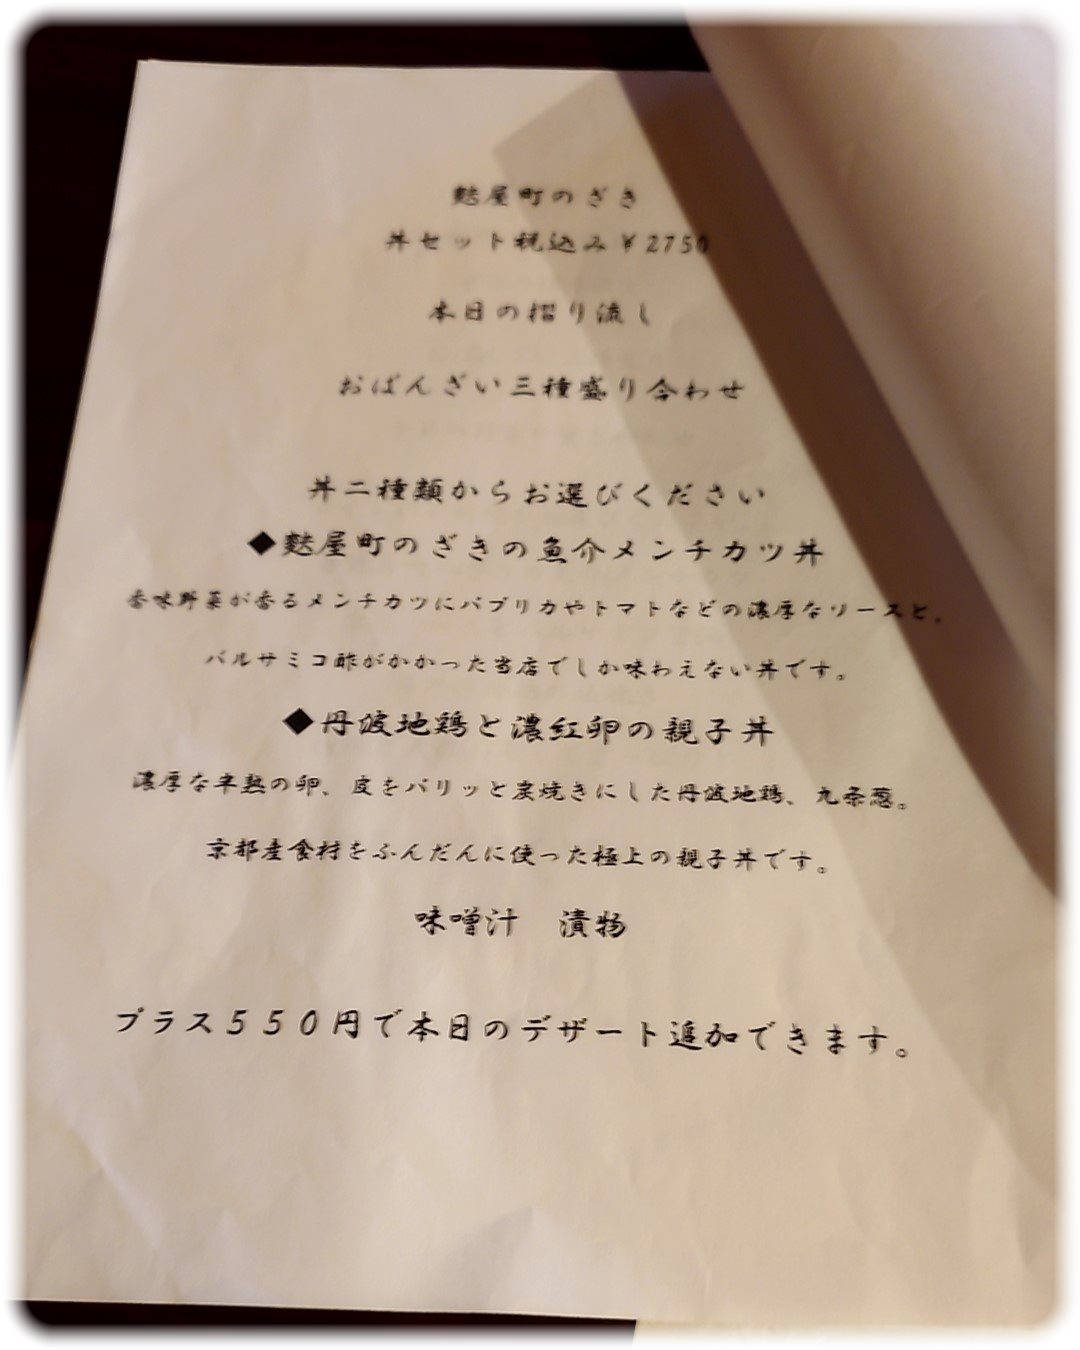 麩屋町のざき
丼セット税込み¥2750
本日の摺り流し
おばんざい三種盛り合わせ
丼二種類からお選びください
◆麩屋町のざきの魚介メンチカツ丼
香味野菜が香るメンチカツにパプリカやトマトなどの濃厚なソースと、
バルサミコ酢がかかった当店でしか味わえない丼です。
◆丹波地鶏と濃紅卵の親子丼
濃厚な半熟の卵、皮をパリッと炭焼きにした丹波地鶏、九条葱。
京都産食材をふんだんに使った極上の親子丼です。
味噌汁　漬物
プラス５５０円で本日のデザート追加できます。